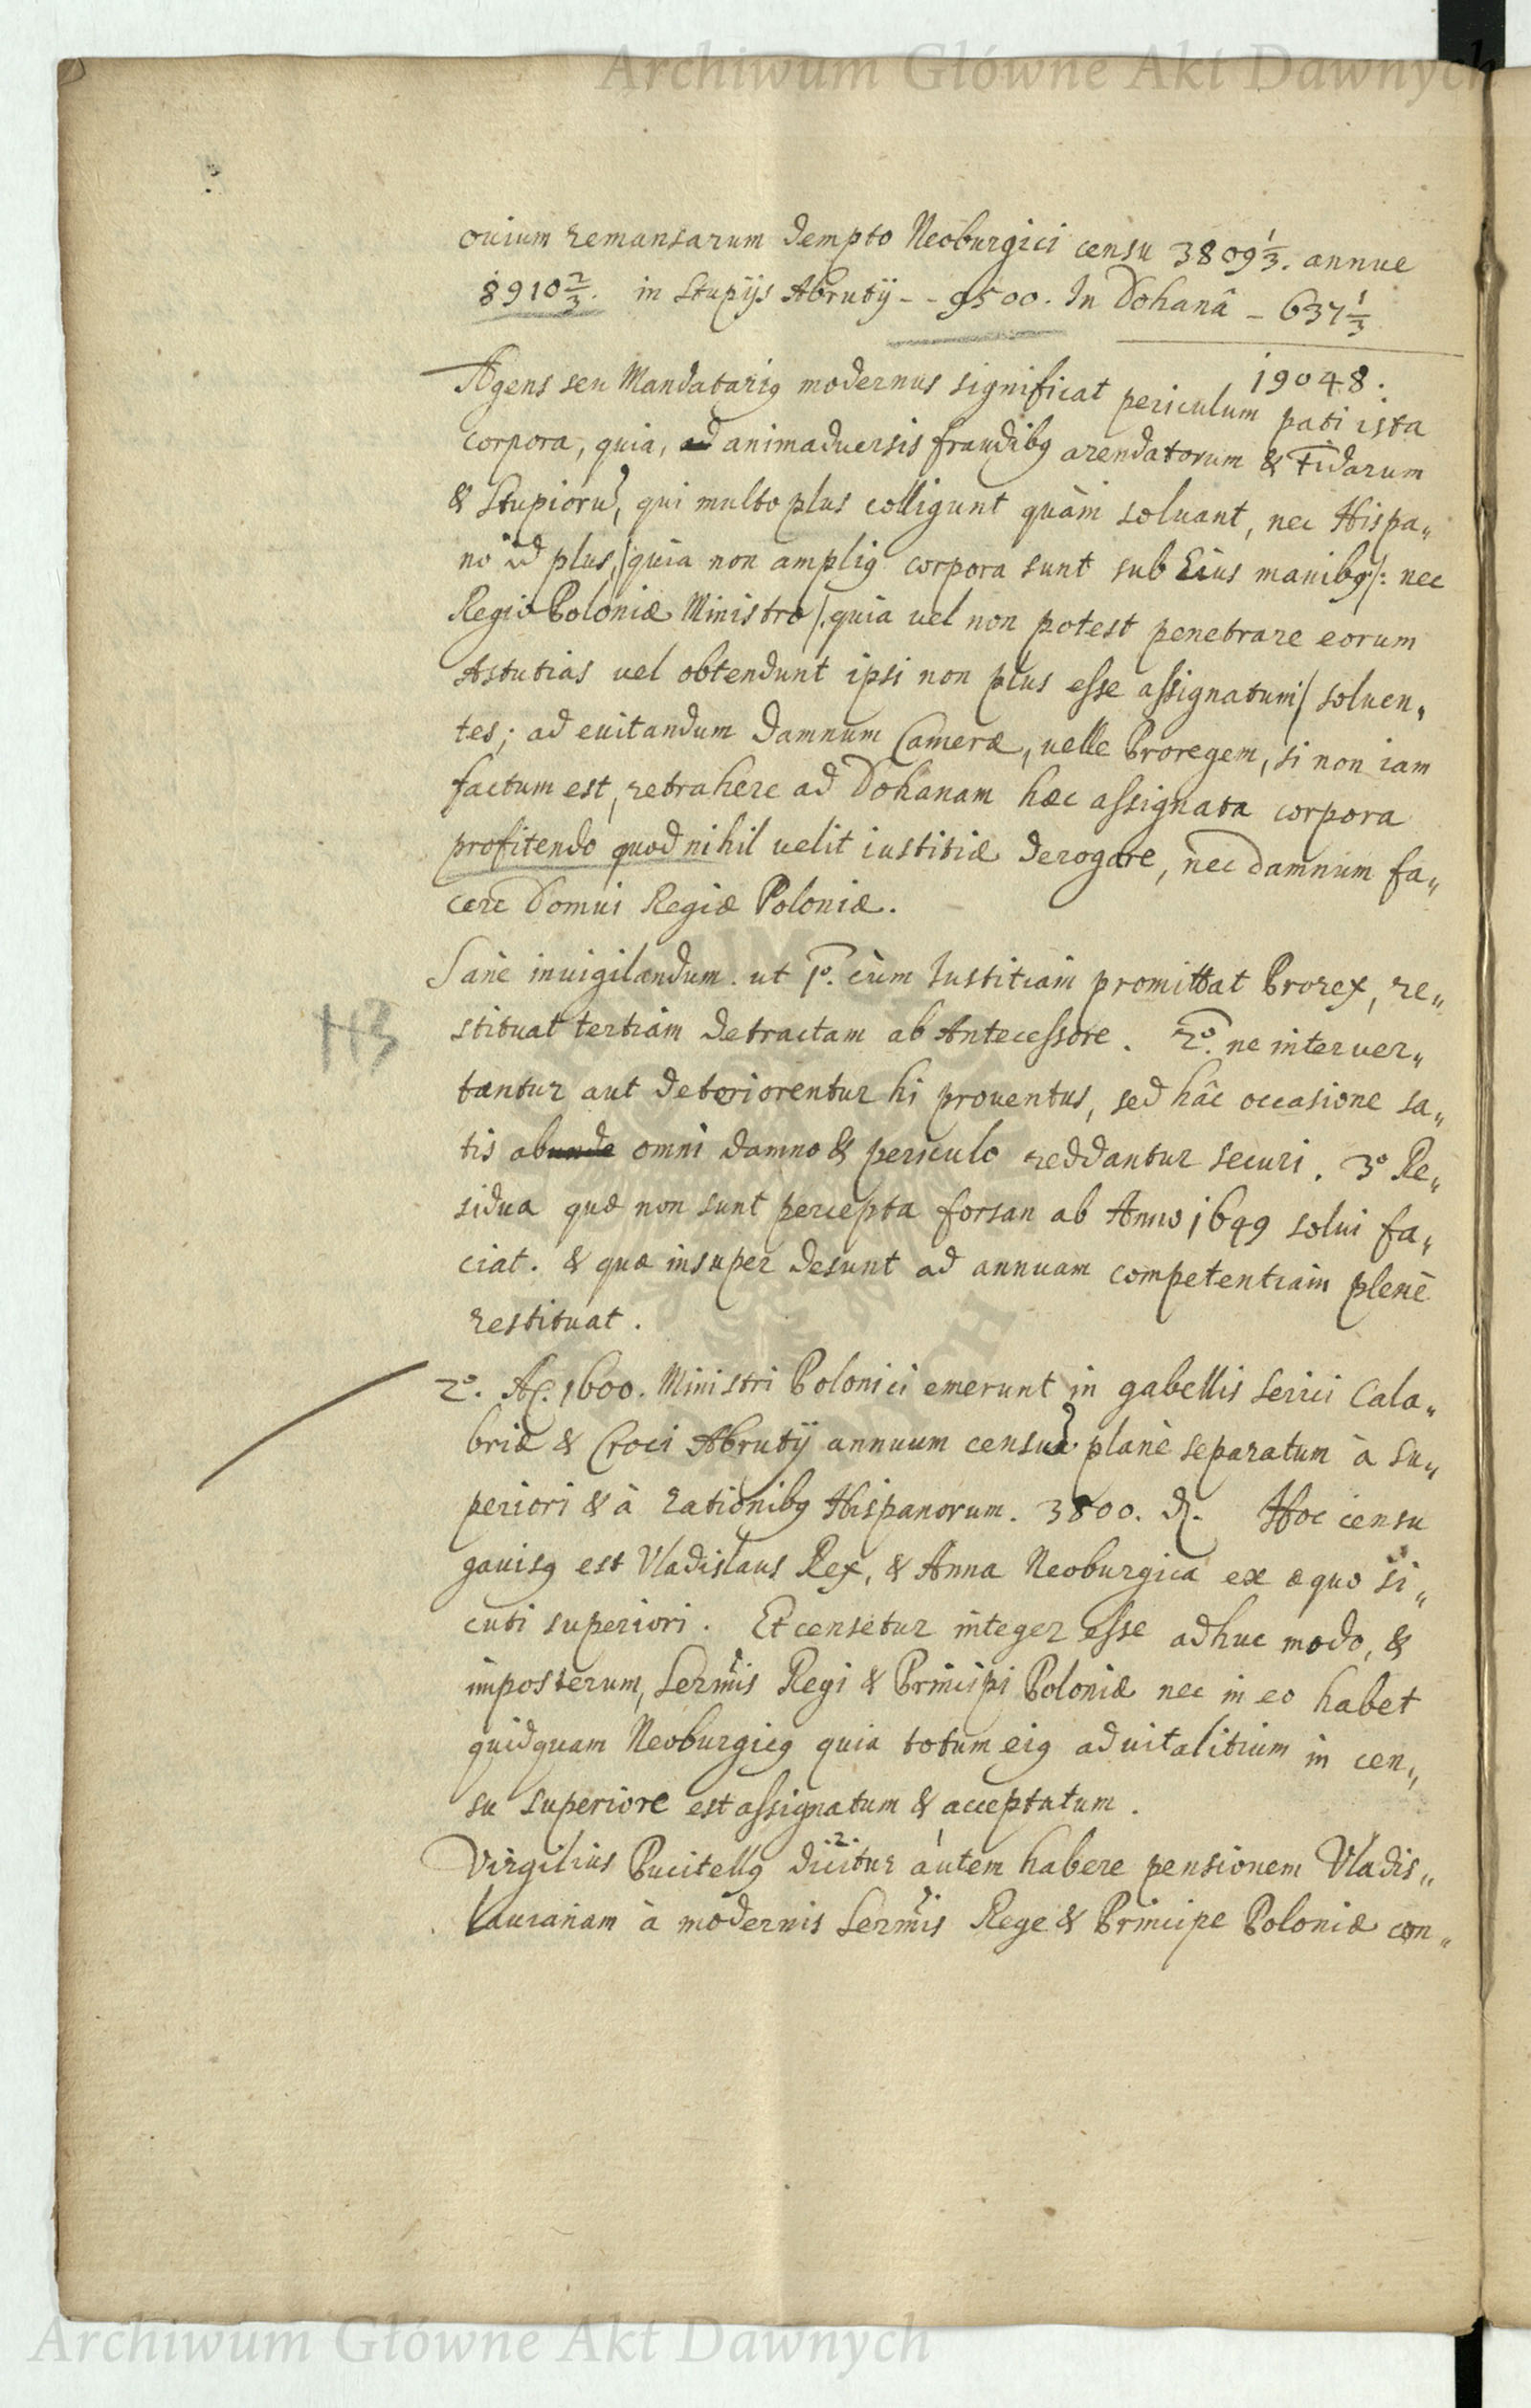 Archiwum Główne Akt Dawnych
ouium remansarum dempto Neoburgici censu 3809 1/3. annue
8910 2/3. in Stupijs Abrutij - - 9500. In Dohanâ - 637 1/3
19048.
Agens seu Mandatariꝯ modernus significat periculum pati ista
corpora, quia, ad animaduersis fraudibꝯ arendatorum & Fidarum
& Stupiorũ, qui multo plus colligunt quàm soluant, nec Hispa„
no id plus, /:quia non ampliꝯ corpora sunt sub Eius manibꝯ/: nec
Regio Poloniæ Ministro /.quia uel non potest penetrare eorum
Astutias uel obtendunt ipsi non plus esse assignatum/ soluen„
tes; ad euitandum damnum Cameræ, uelle Proregem, si non iam
factum est, retrahere ad Dohanam hæc assignata corpora
profitendo quod nihil uelit iustitiæ derogare, nec damnum fa„
cere Domui Regiæ Poloniæ.
Sanè inuigilandum. ut 1º. cùm Iustitiam promittat Prorex, re„
113
stituat tertiam detractam ab Antecessore. 2º. ne interuer„
tantur aut deteriorentur hi prouentus, sed hâc occasione sa„
tis abunde omni damno & periculo reddantur securi. 3º Re„
sidua quæ non sunt percepta forsan ab Anno 1649 solui fa„
ciat. & quæ insuper desunt ad annuam competentiam plenè
restituat.
2º. Aº. 1600. Ministri Polonici emerunt in gabellis Serici Cala„
briæ & Croci Abrutij annuum censum planè separatum à su„
periori & à rationibꝯ Hispanorum. 3800. d. Hoc censu
gauisꝯ est Vladislaus Rex, & Anna Neoburgica ex æquo si„
cuti superiori. Et censetur integer esse adhuc modo, &
imposterum, Sermis Regi & Principi Poloniæ nec in eo habet
quidquam Neoburgicꝯ quia totum eiꝯ aduitalitium in cen„
su superiore est assignatum & acceptatum.
Virgilius Pucitellꝯ dicitur autem habere pensionem Vladis„
lauianam à modernis Sermis Rege & Principe Poloniæ con„
Archiwum Główne Akt Dawnych